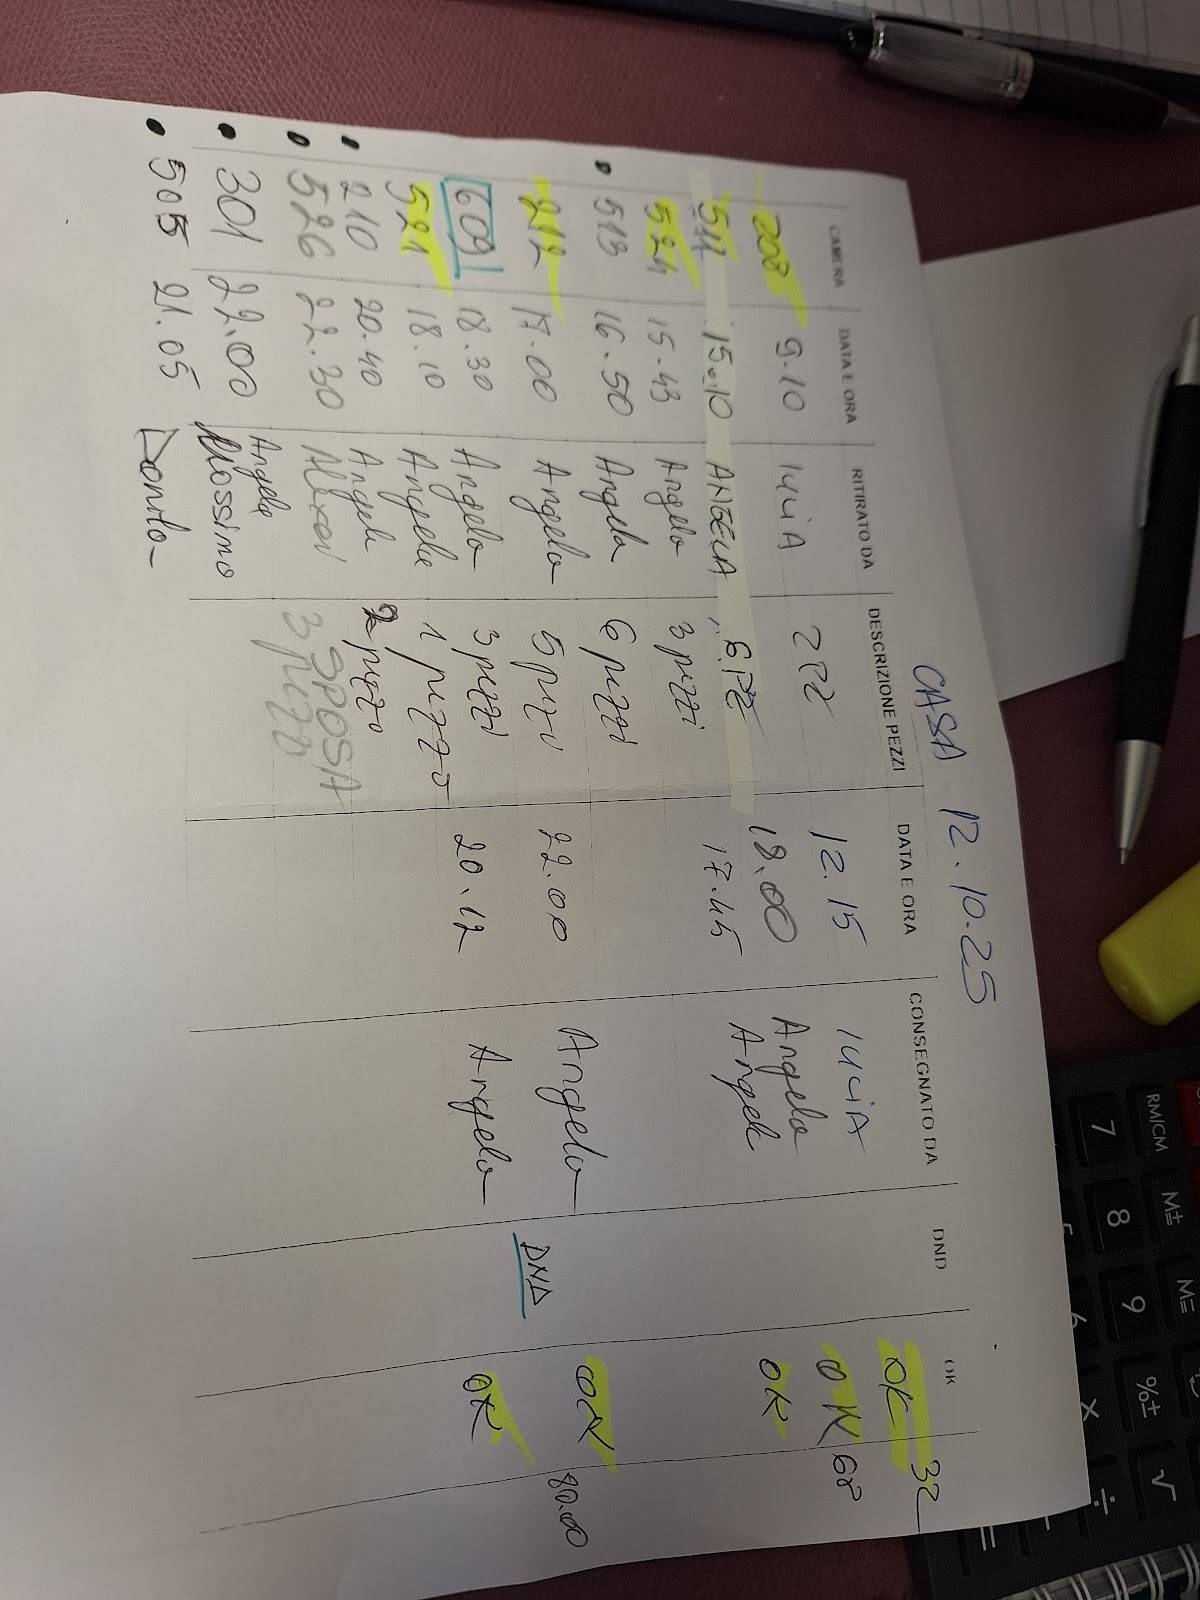 CASA 12.10.25
CAMERA DATA E ORA RITIRATO DA DESCRIZIONE PEZZI DATA E ORA CONSEGNATO DA DND OK
208 9.10 LUCIA 2 PZ 12.15 LUCIA OK 32
511 15.10 ANGELA 6 PZ 18.00 Angela OK 68
524 15.43 Angela 3 pezzi 17.45 Angela OK
• 513 16.50 Angela 6 pezzi
212 17.00 Angela 5 pezzi 22.00 Angela OK 80.00
609 18.30 Angela 3 pezzi DND
521 18.10 Angela 1 pezzo 20.12 Angela OK
• 210 20.40 Angela 2 pezzo
• 526 22.30 SPOSA 3 pezzi
• 301 22.00 Angela Massimo
• 505 21.05
RM/CM M± M=
7 8 9 %± √
6 × ÷
=